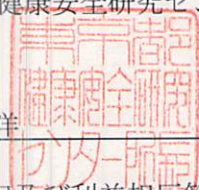 健康安全研究セ
東京都
健康安全研究
洋
センター所長
及び利益相反